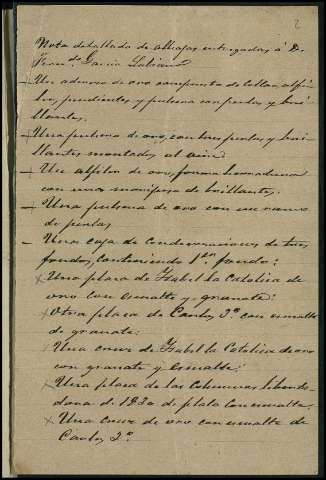 2
Nota detallada de alhajas entregadas á D.
Fran.do García
Un aderezo de oro compuesto de collar, alfi-
ler, pendientes y pulsera con perlas y bri-
llantes.
Una pulsera de oro, con tres perlas y bri-
llantes montados al aire
Un alfiler de oro, forma herradura
con una mariposa de brillantes.
Una pulsera de oro con un ramo
de perlas
Una caja de condecoraciones de tres
fondos, conteniendo 1.er fondo:
Una placa de Isabel la Catolica de
oro con esmalte y granate:
Otra placa de Carlos 3.º con esmalte
de granate:
Una cruz de Isabel la Catolica de oro
con granate y esmalte:
Una placa de las
de 1830 de plata con esmalte.
Una cruz de oro con esmalte de
Carlos 3.º